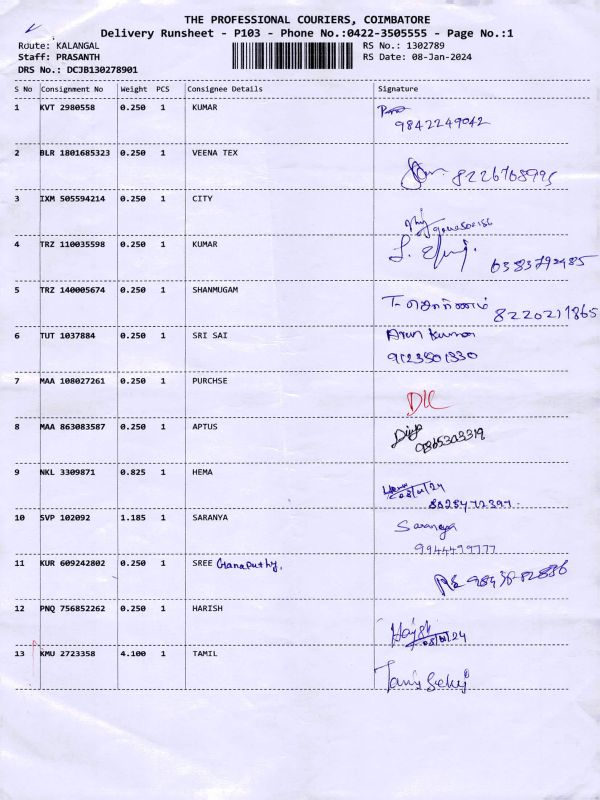 THE PROFESSIONAL COURIERS, COIMBATORE
Delivery Runsheet - P103 - Phone No.:0422-3505555 - Page No.:1
Route: KALANGAL RS No.: 1302789
Staff: PRASANTH RS Date: 08-Jan-2024
DRS No.: DCJB130278901
S No Consignment No Weight PCS Consignee Details Signature
1 KVT 2980558 0.250 1 KUMAR
9842249042
2 BLR 1801685323 0.250 1 VEENA TEX
3 IXM 505594214 0.250 1 CITY
4 TRZ 110035598 0.250 1 KUMAR
5 TRZ 140005674 0.250 1 SHANMUGAM
8220211865
6 TUT 1037884 0.250 1 SRI SAI Arun Kumar
9123501330
7 MAA 108027261 0.250 1 PURCHSE
8 MAA 863083587 0.250 1 APTUS
Divya
9 NKL 3309871 0.825 1 HEMA
08/01/24
10 SVP 102092 1.185 1 SARANYA Saranya
11 KUR 609242802 0.250 1 SREE Ganapathy,
12 PNQ 756852262 0.250 1 HARISH
08/01/24
13 KMU 2723358 4.100 1 TAMIL